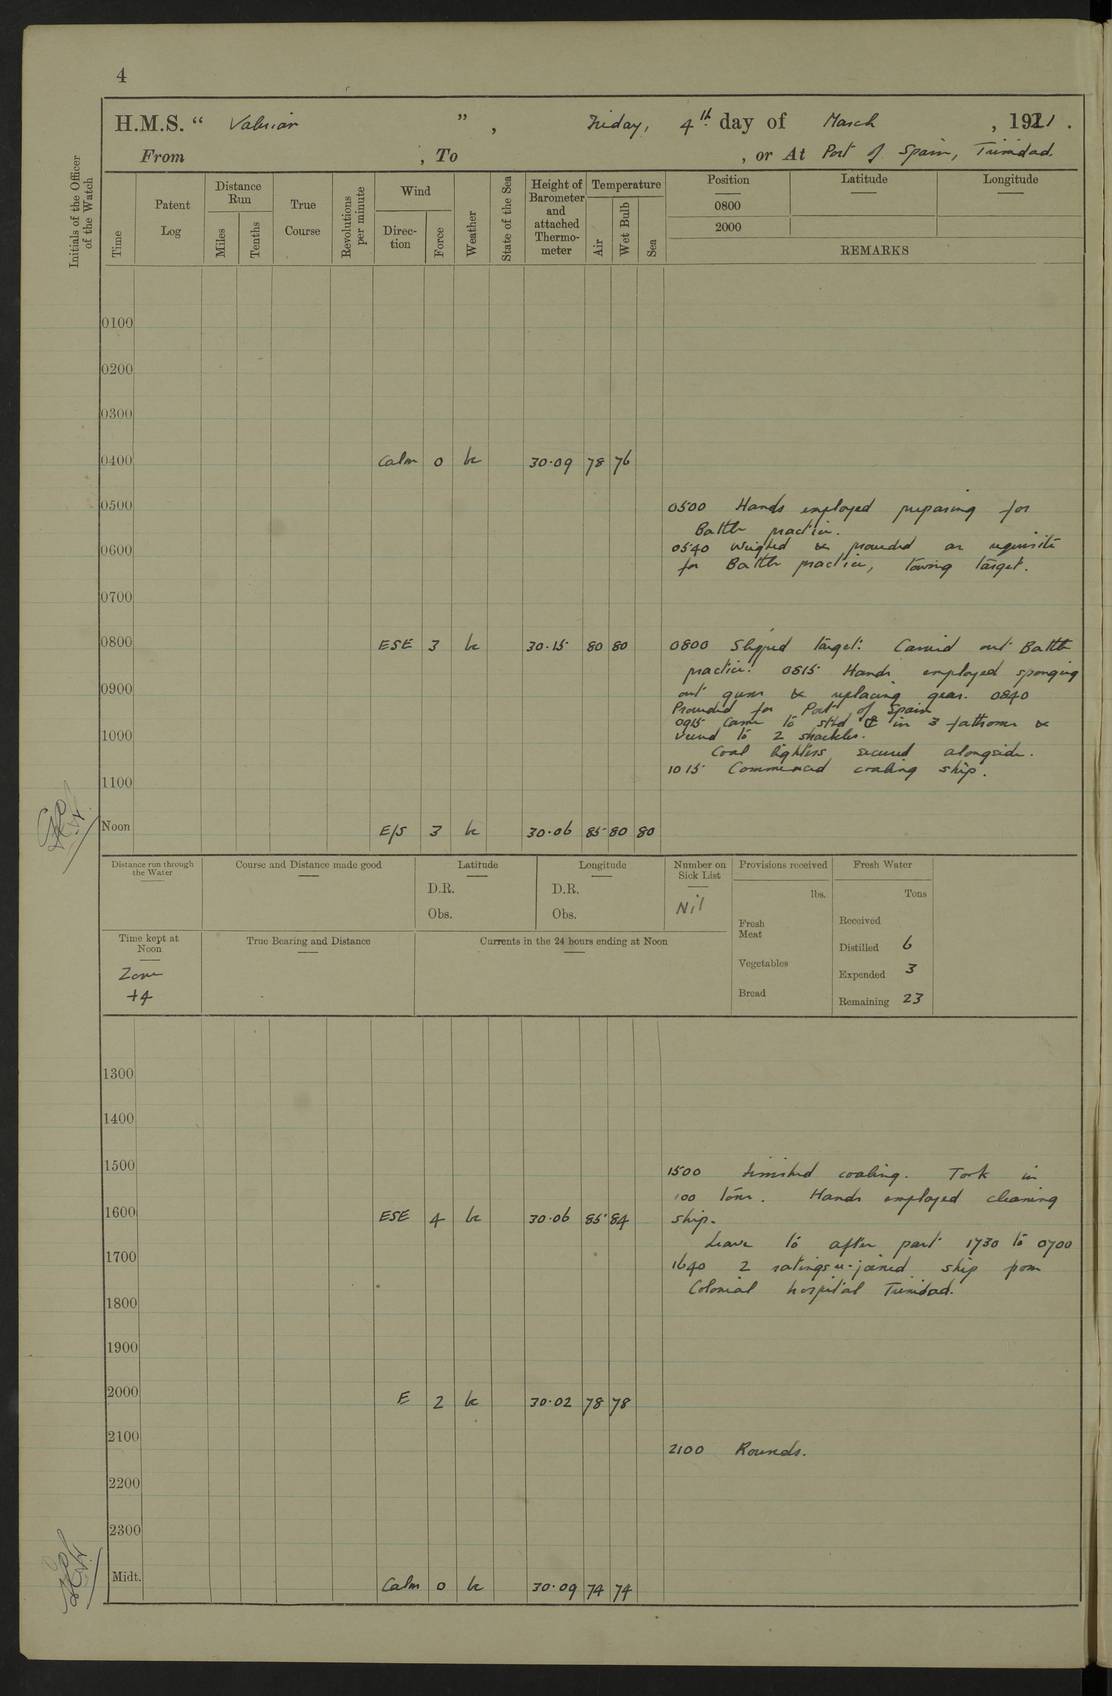 4
H.M.S. “ Valerian ” , Friday, 4th day of March , 1921 .
From , To , or At Port of Spain, Trinidad.
Initials of the Officer of the Watch
Time
Patent Log
Distance Run
Miles
Tenths
True Course
Revolutions per minute
Wind
Direc-tion
Force
Weather
State of the Sea
Height of Barometer and attached Thermo-meter
Temperature
Air
Wet Bulb
Sea
Position Latitude Longitude
0800
2000
REMARKS
0100
0200
0300
0400 Calm 0 bc 30·09 78 76
0500 0500 Hands employed preparing for
Battle practice.
0600 0540 Weighed & proceeded as requisite
for Battle practice, towing target.
0700
0800 ESE 3 bc 30·15 80 80 0800 Slipped target. Carried out Battle
practice. 0815 Hands employed sponging
0900 out guns & replacing gear. 0840
Proceeded for Port of Spain
0915 Came to stbd in 3 fathoms &
1000 veered to 2 shackles.
Coal lighters secured alongside.
1015 Commenced coaling ship.
1100
Noon E/S 3 bc 30·06 85 80 80
Distance run through the Water
Course and Distance made good
Latitude
D.R.
Obs.
Longitude
D.R.
Obs.
Number on Sick List
Nil
Provisions received
lbs.
Fresh Meat
Vegetables
Bread
Fresh Water
Tons
Received
Distilled 6
Expended 3
Remaining 23
Time kept at Noon
Zone
+4
True Bearing and Distance
Currents in the 24 hours ending at Noon
1300
1400
1500 1500 Finished coaling. Took in
100 tons. Hands employed cleaning
1600 ESE 4 bc 30·06 85 84 ship.
Leave to after part 1730 to 0700
1700 1640 2 ratings re-joined ship from
Colonial hospital Trinidad.
1800
1900
2000 E 2 bc 30·02 78 78
2100 2100 Rounds.
2200
2300
Midt. Calm 0 bc 30·09 74 74